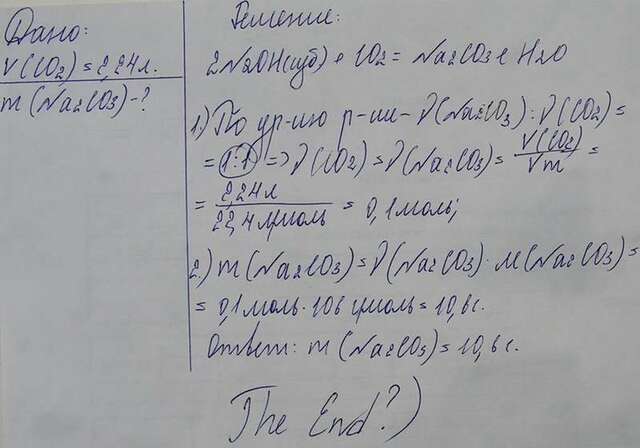 Дано:
V(CO2)=2,24л.
m(Na2CO3)-?
Решение:
2NaOH(изб)+CO2=Na2CO3+H2O
1) По ур-ию р-ии- ν(Na2CO3):ν(CO2)=
=1:1 => ν(CO2)=ν(Na2CO3)= V(CO2)/Vm =
= 2,24л / 22,4л/моль = 0,1моль;
2.) m(Na2CO3)=ν(Na2CO3)·M(Na2CO3)=
=0,1моль·106г/моль=10,6г.
Ответ: m(Na2CO3)=10,6г.
The End?)